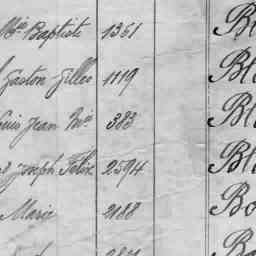 Mie Baptiste 1361 Bl
Gaston Gilles 1119 Bl
Louis Jean Mie 383 Bl
Joseph Felix 2594 Bl
Marie 2188 Bo